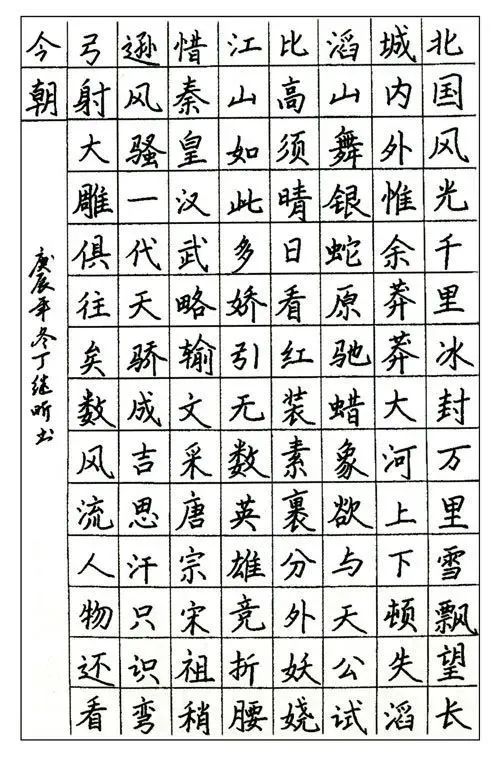 北国风光千里冰封万里雪飘望长
城内外惟余莽莽大河上下顿失滔
滔山舞银蛇原驰蜡象欲与天公试
比高须晴日看红装素裹分外妖娆
江山如此多娇引无数英雄竞折腰
惜秦皇汉武略输文采唐宗宋祖稍
逊风骚一代天骄成吉思汗只识弯
弓射大雕俱往矣数风流人物还看
今朝
庚辰年冬丁继昕书